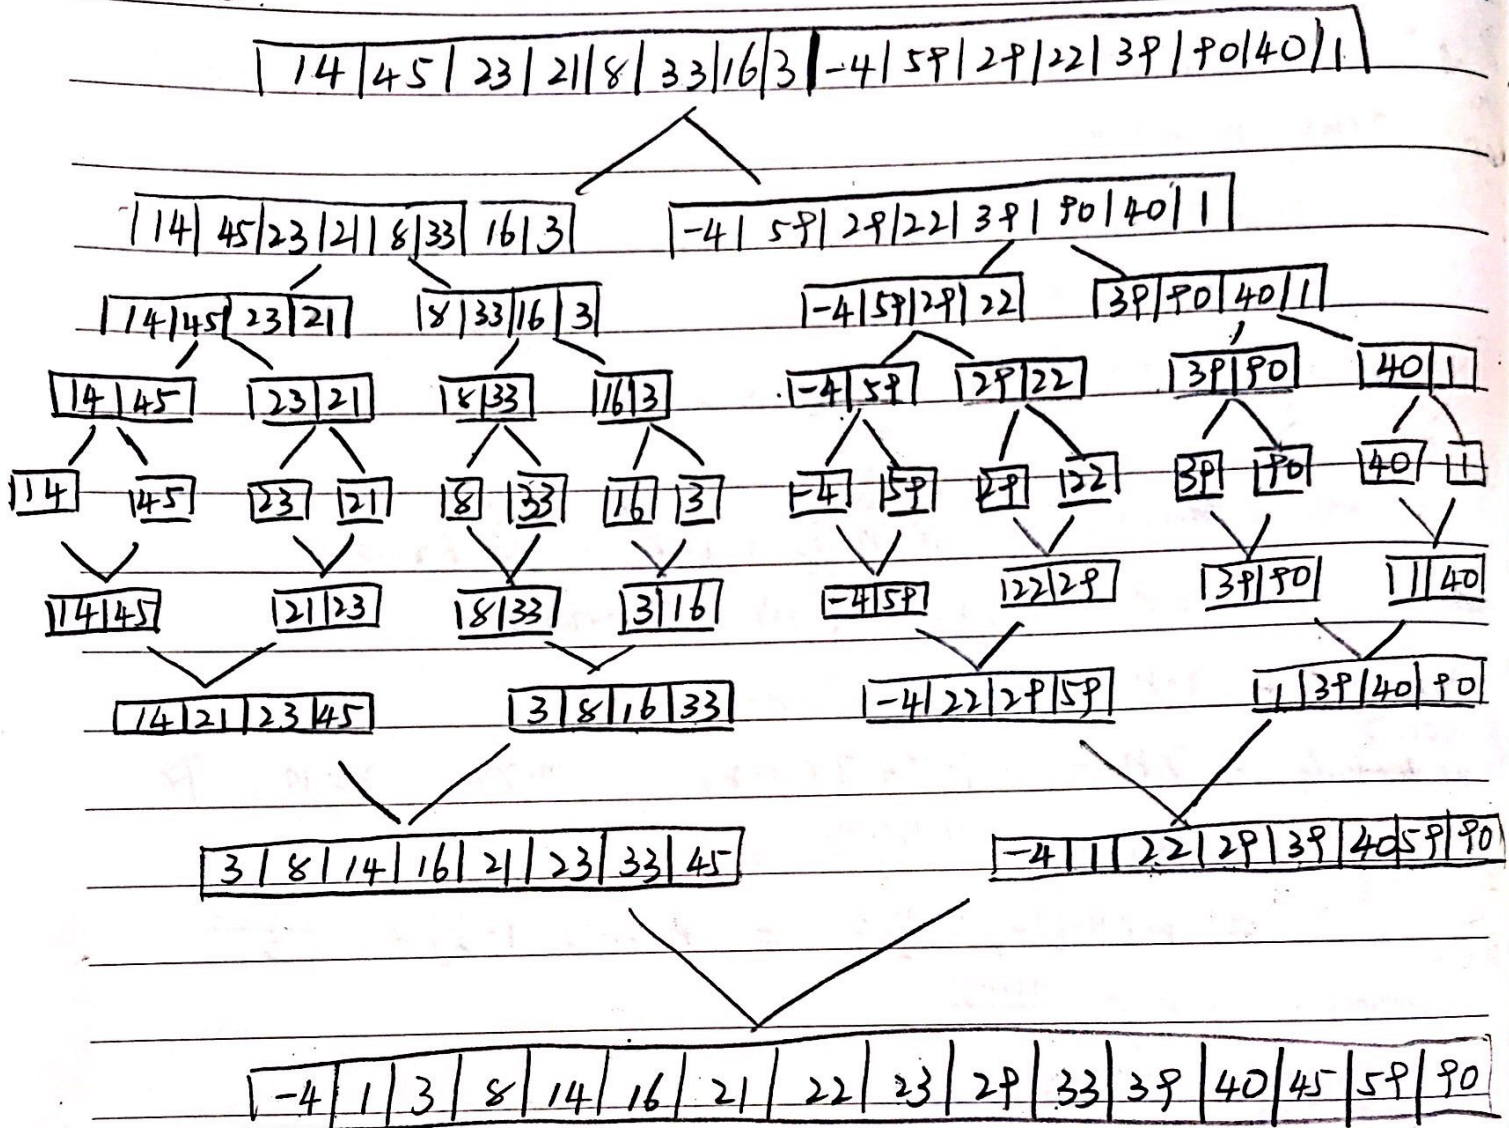 14 45 23 21 8 33 16 3 -4 59 29 22 39 90 40 1
14 45 23 21 8 33 16 3 -4 59 29 22 39 90 40 1
14 45 23 21 8 33 16 3 -4 59 29 22 39 90 40 1
14 45 23 21 8 33 16 3 -4 59 29 22 39 90 40 1
14 45 23 21 8 33 16 3 -4 59 29 22 39 90 40 1
14 45 21 23 8 33 3 16 -4 59 22 29 39 90 1 40
14 21 23 45 3 8 16 33 -4 22 29 59 1 39 40 90
3 8 14 16 21 23 33 45 -4 1 22 29 39 40 59 90
-4 1 3 8 14 16 21 22 23 29 33 39 40 45 59 90